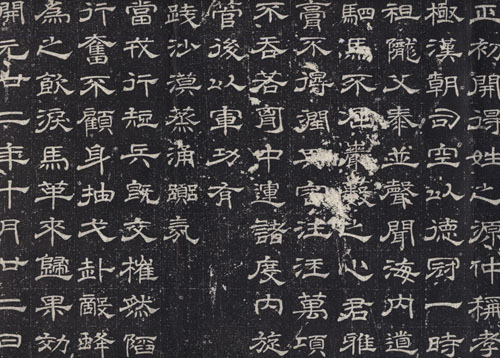 正初開得姓之源仲稱孝
極漢朝司空以德冠一時
祖隴父泰並聲聞海內道
駟馬不巖藪之心君雅
膏不得潤字汪汪萬頃
不吞若胷中連諸度內旋
管後以軍功有
踐沙漠蒸涌氛
當戎行短兵既交摧然陷
行奮不顧身抽戈赴敵鋒
為之飲淚馬革來歸果効
開元廿二年十月廿二日